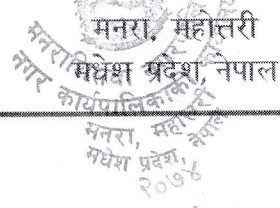 मनरा, महोत्तरी
मधेश प्रदेश, नेपाल
नगर कार्यपालिकाको
मनरा,
मधेश प्रदेश,
नेपाल
२०७४